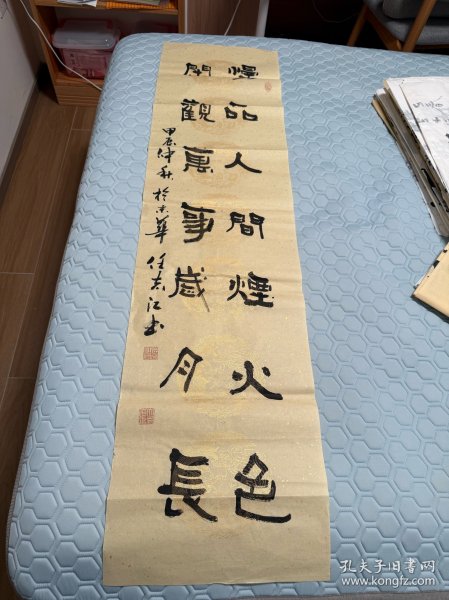 慢品人間煙火色
閑觀萬事歲月長
甲辰仲秋於京華任志江书
孔夫子旧书网
www.kongfz.com